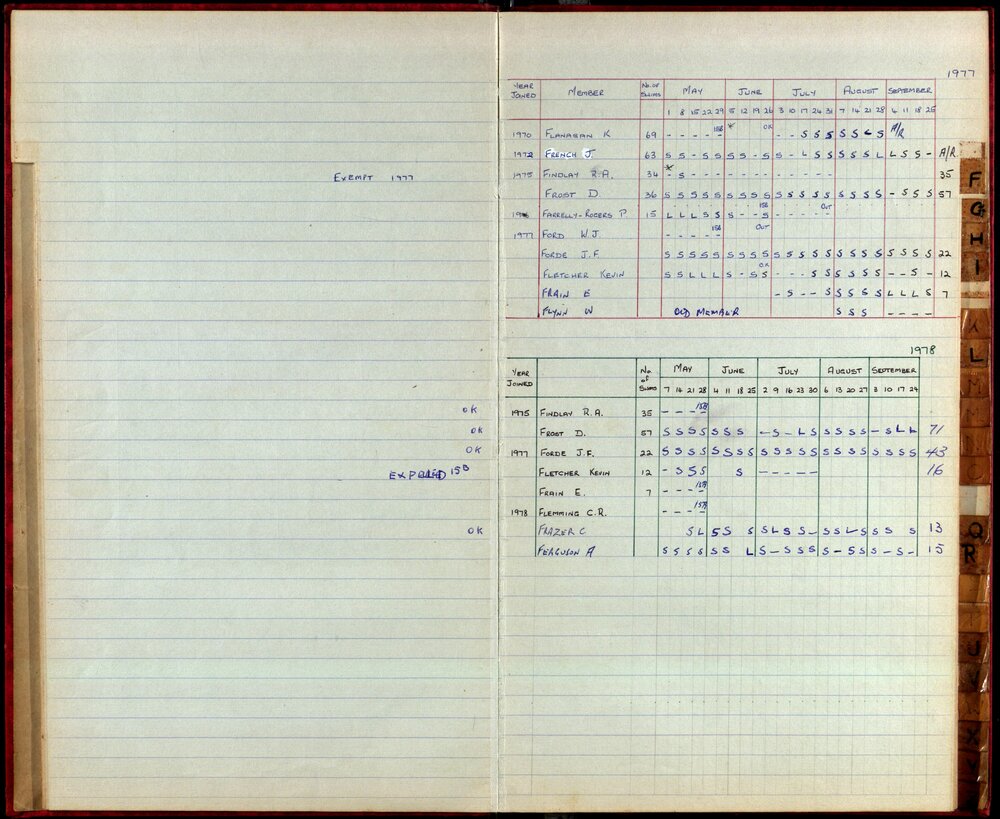 1977
YEAR JOINED MEMBER No. of SWIMS MAY JUNE JULY AUGUST SEPTEMBER
1 8 15 22 29 5 12 19 26 3 10 17 24 31 7 14 21 28 4 11 18 25
1970 FLANAGAN K 69 - - - - - 15B * OK - - S S S S S L S A/R
1972 FRENCH J. 63 S S - S S S S - S S - L S S S S S L L S S - A/R
EXEMPT 1977 1975 FINDLAY R.A. 34 * - S - - - - - - - - - - 35
FROST D. 36 S S S S S S S S S S S S S S S S S S - S S S 57
FARRELLY-ROGERS P. 15 L L L S S S - - S 15B - - - - - OUT
1977 FORD W.J. - - - - - 15B OUT
FORDE J.F. S S S S S S S S S S S S S S S S S S S S S S 22
FLETCHER KEVIN S S L L L S - S S OK - - - S S S S S S - - S - 12
FRAIN E - S - - S S S S S L L L S 7
FLYNN W OLD MEMBER S S S - - - -
1978
YEAR JOINED No of SWIMS MAY JUNE JULY AUGUST SEPTEMBER
7 14 21 28 4 11 18 25 2 9 16 23 30 6 13 20 27 3 10 17 24
OK 1975 FINDLAY R.A. 35 - - - - 15B
OK FROST D. 57 S S S S S S S - S - L S S S S S - S L L 71
OK 1977 FORDE J.F. 22 S S S S S S S S S S S S S S S S S S S S S 43
EXPELLED 15B FLETCHER KEVIN 12 - S S S S - - - - - 16
FRAIN E. 7 - - - - 15B
1978 FLEMMING C.R. - - - - 15B
OK FRAZER C S L S S S S L S S - S S L S S S S 13
FERGUSON A S S S S S S L S - S S S S - S S S - S - 15
F
G
H
I
K
L
M
N
O
Q
R
U
V
W
X
Y